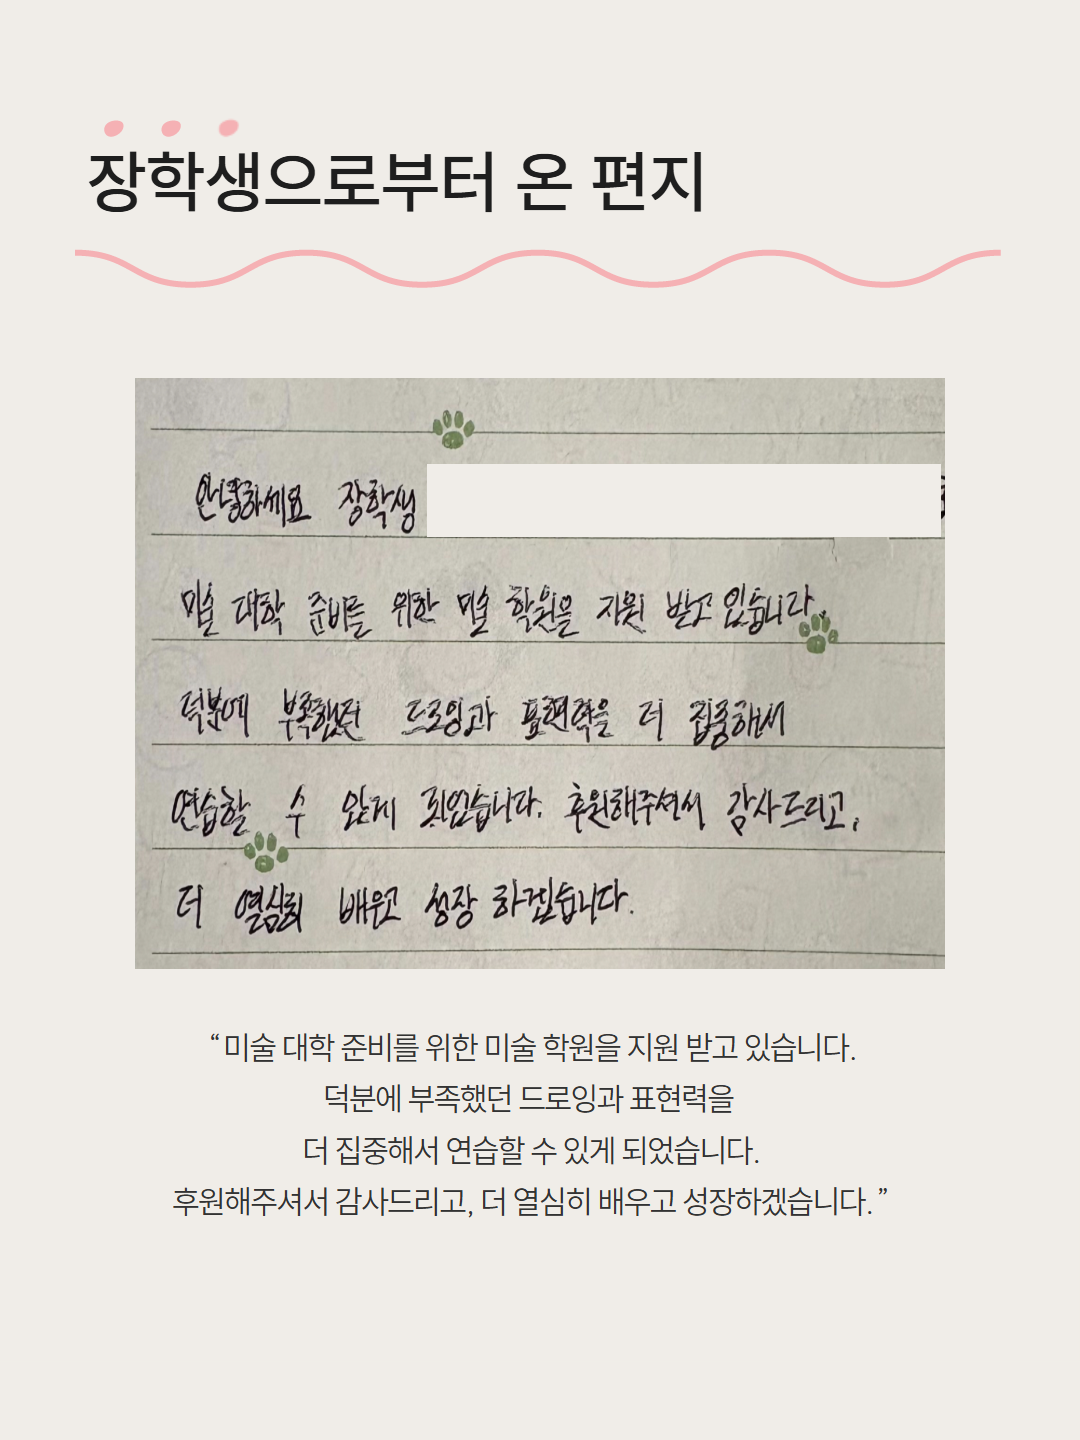 장학생으로부터 온 편지
안녕하세요 장학생
미술 대학 준비를 위한 미술 학원을 지원 받고 있습니다.
덕분에 부족했던 드로잉과 표현력을 더 집중해서
연습할 수 있게 되었습니다. 후원해주셔서 감사드리고,
더 열심히 배우고 성장 하겠습니다.
“ 미술 대학 준비를 위한 미술 학원을 지원 받고 있습니다.
덕분에 부족했던 드로잉과 표현력을
더 집중해서 연습할 수 있게 되었습니다.
후원해주셔서 감사드리고, 더 열심히 배우고 성장하겠습니다. ”